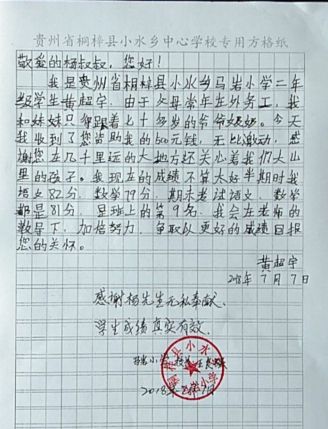 贵州省桐梓县小水乡中心学校专用方格纸
敬爱的杨叔叔，您好！
我是贵州省桐梓县小水乡马岩小学二年
级学生黄超宇。由于父母常年在外务工，我
和妹妹只能跟着七十多岁的爷爷奶奶。今天
我收到了您资助我的600元钱，无比激动，感
谢您在几千里远的大地方还关心着我们大山
里的孩子。我现在的成绩不算太好半期时我
语文82分，数学79分，期末考试语文、数学
都是81分，是班上的第9名。我会在老师的
教导下，加倍努力，争取以更好的成绩回报
您的关怀。
黄超宇
2018年7月7日
感谢杨先生无私奉献。
学生成绩真实有效。
小学
桐梓县小水
小学
2018年